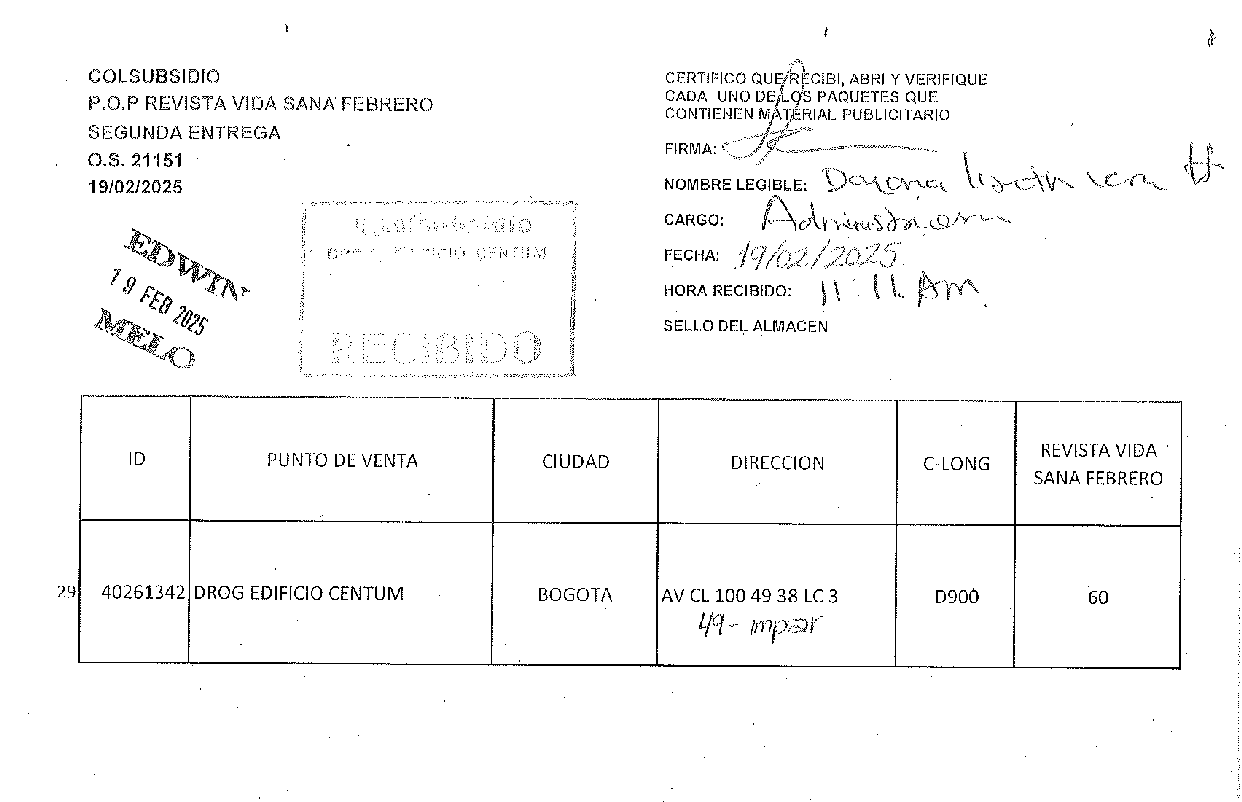 COLSUBSIDIO
P.O.P REVISTA VIDA SANA FEBRERO
SEGUNDA ENTREGA
O.S. 21151
19/02/2025
EDWIN
19 FEB 2025
MELO
EDIFICIO CENTUM
RECIBIDO
CERTIFICO QUE RECIBI, ABRI Y VERIFIQUE
CADA UNO DE LOS PAQUETES QUE
CONTIENEN MATERIAL PUBLICITARIO
FIRMA:
NOMBRE LEGIBLE:
CARGO:
FECHA: 19/02/2025
HORA RECIBIDO: 11:11 Am
SELLO DEL ALMACEN
ID PUNTO DE VENTA CIUDAD DIRECCION C-LONG REVISTA VIDA
SANA FEBRERO
29 40261342 DROG EDIFICIO CENTUM BOGOTA AV CL 100 49 38 LC 3 D900 60
49 - impar